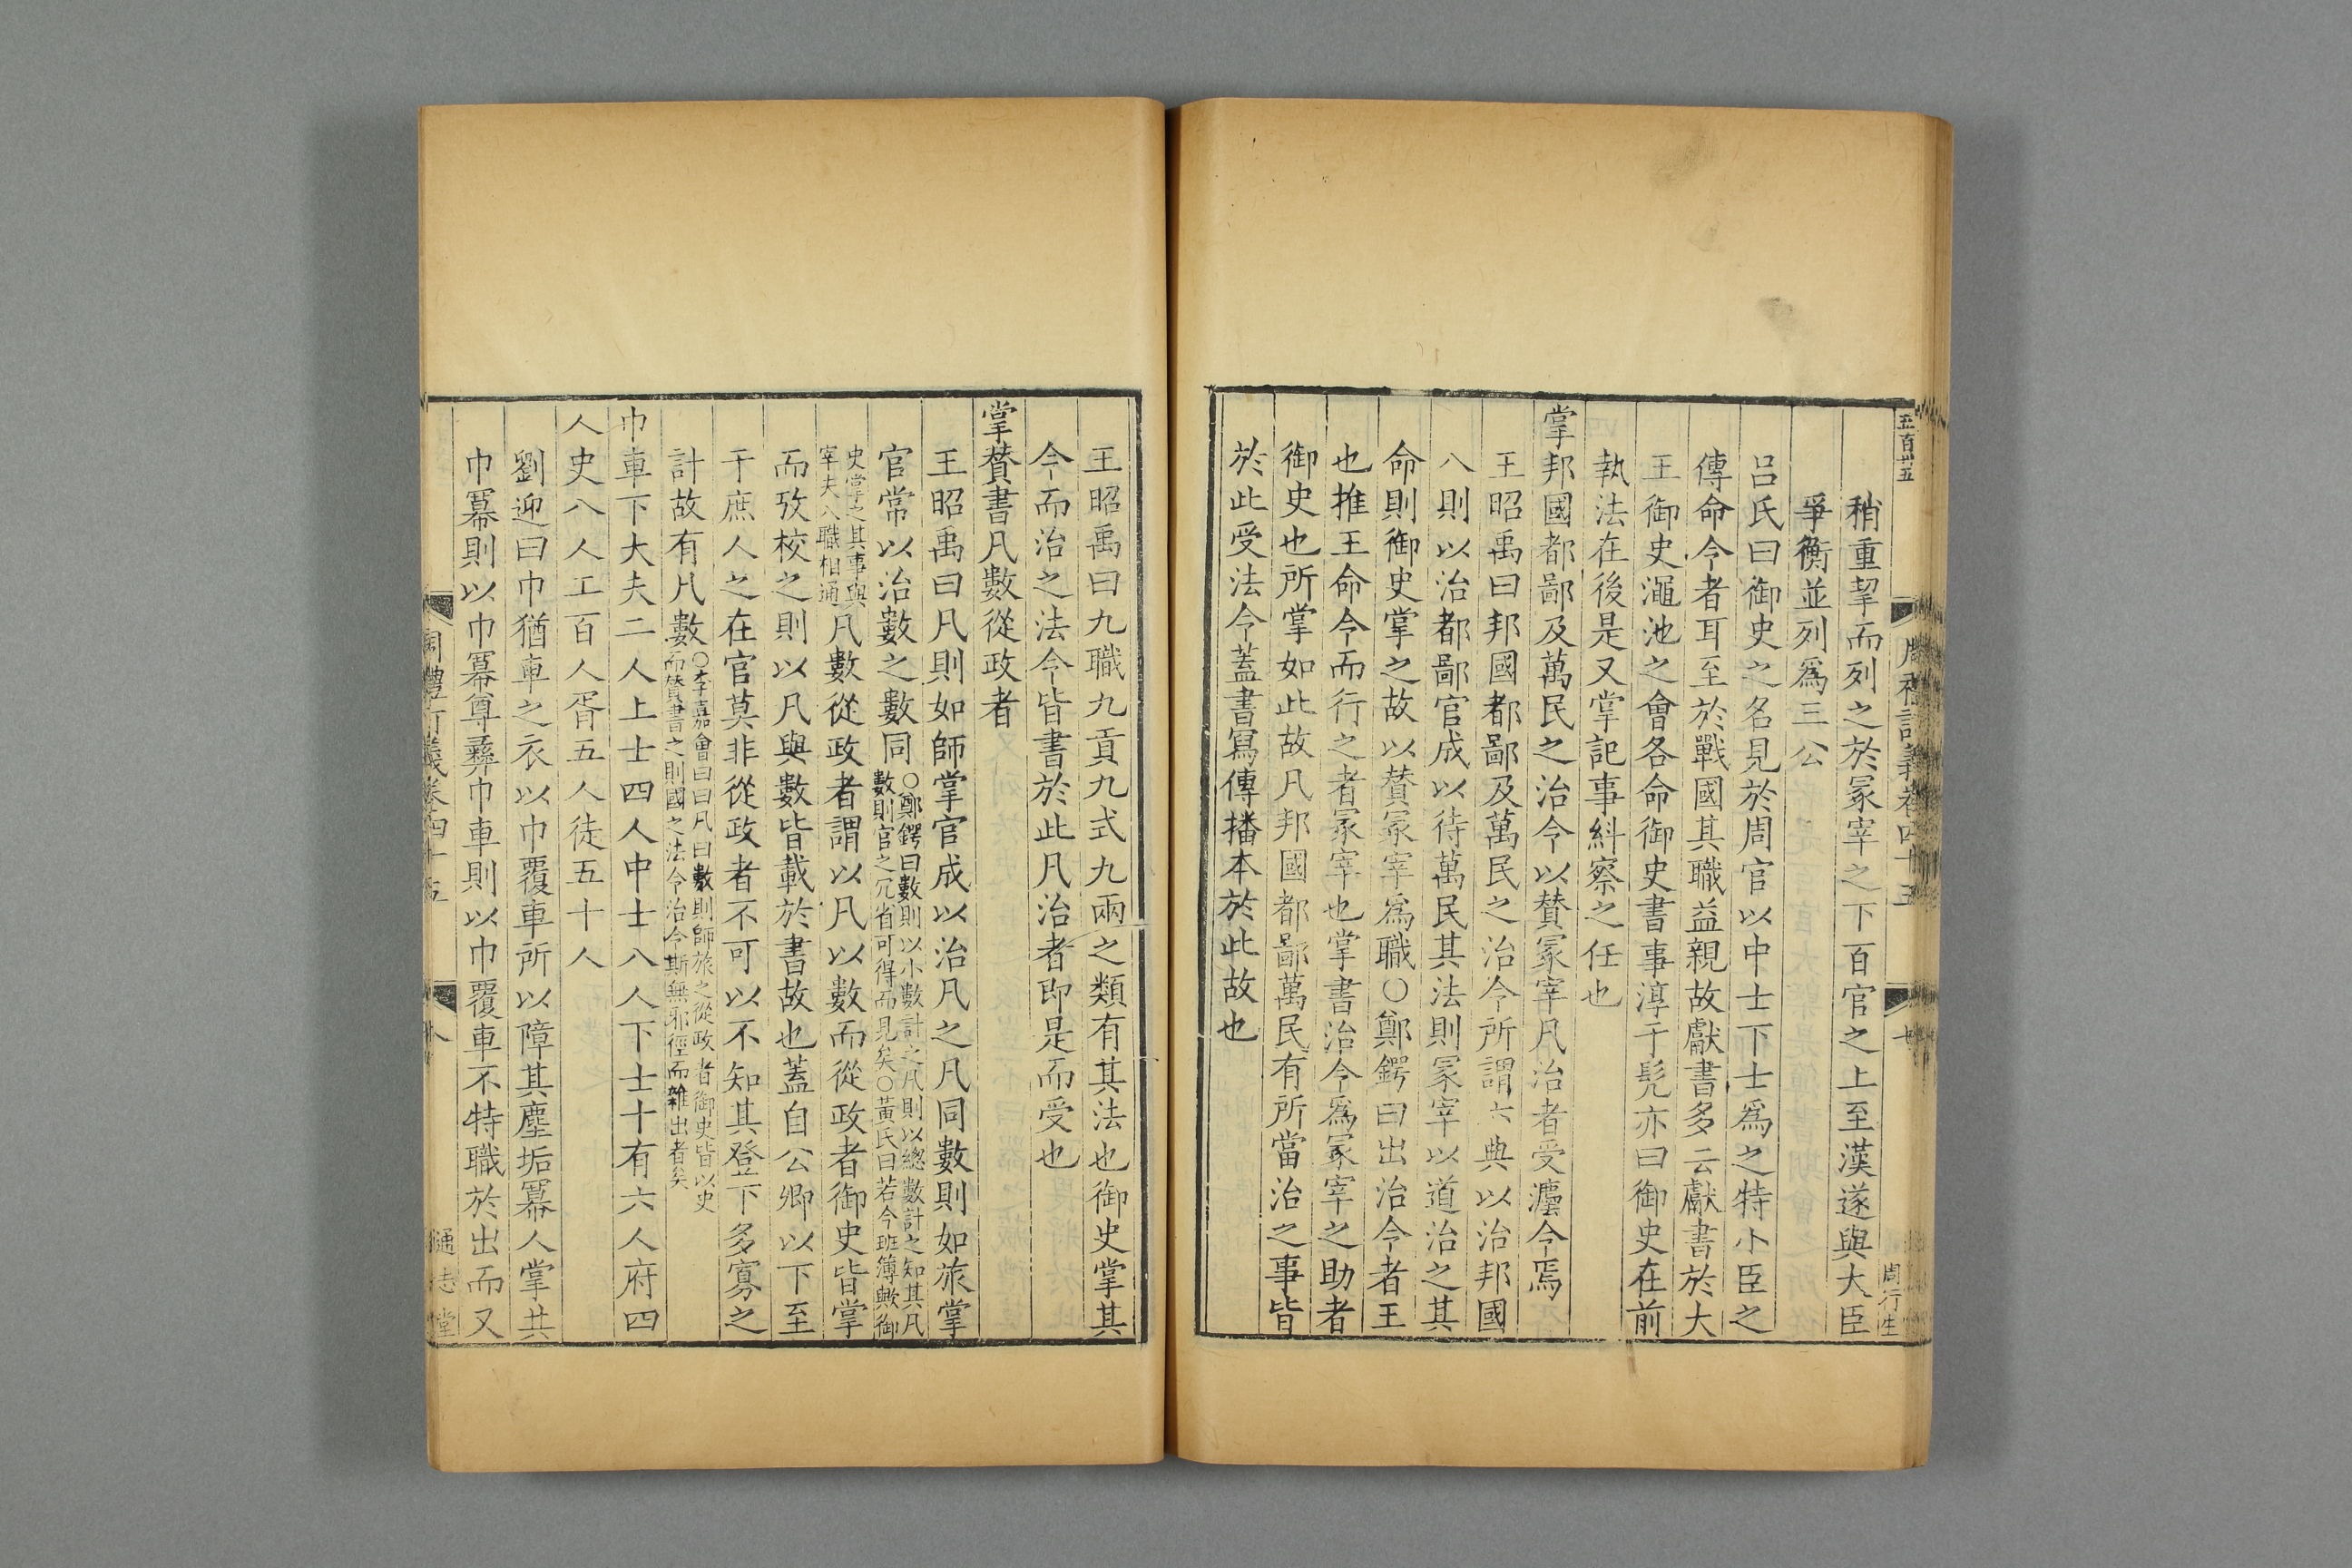 五百卅五
周禮訂義卷四十五
周行生
稍重挈而列之於冢宰之下百官之上至漢遂與大臣
爭衡並列爲三公
呂氏曰御史之名見於周官以中士下士爲之特小臣之
傳命令者耳至於戰國其職益親故獻書多云獻書於大
王御史澠池之會各命御史書事淳于髠亦曰御史在前
執法在後是又掌記事糾察之任也
掌邦國都鄙及萬民之治令以贊冢宰凡治者受灋令焉
王昭禹曰邦國都鄙及萬民之治令所謂六典以治邦國
八則以治都鄙官成以待萬民其法則冢宰以道治之其
命則御史掌之故以贊冢宰爲職○鄭鍔曰出治令者王
也推王命令而行之者冢宰也掌書治令爲冢宰之助者
御史也所掌如此故凡邦國都鄙萬民有所當治之事皆
於此受法令蓋書寫傳播本於此故也
王昭禹曰九職九貢九式九兩之類有其法也御史掌其
令而治之法令皆書於此凡治者即是而受也
掌贊書凡數從政者
王昭禹曰凡則如師掌官成以治凡之凡同數則如旅掌
官常以治數之數同○鄭鍔曰數則以小數計之凡則以總數計之知其凡
數則官之冗省可得而見矣○黃氏曰若今班簿歟御
史掌之其事與
宰夫八職相通凡數從政者謂以凡以數而從政者御史皆掌
而攷校之則以凡與數皆載於書故也蓋自公卿以下至
于庶人之在官莫非從政者不可以不知其登下多寡之
計故有凡數○李嘉會曰曰凡曰數則師旅之從政者御史皆以史
而贊書之則國之法令治令斯無邪徑而雜出者矣
巾車下大夫二人上士四人中士八人下士十有六人府四
人史八人工百人胥五人徒五十人
劉迎曰巾猶車之衣以巾覆車所以障其塵垢冪人掌共
巾冪則以巾冪尊彝巾車則以巾覆車不特職於出而又
周禮訂義卷四十五
通志堂